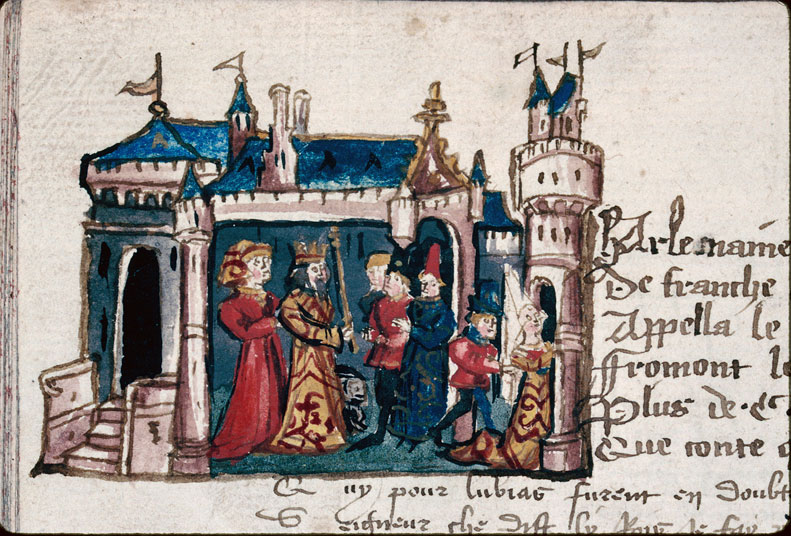 Karlemaine
De franche
Appella le
ffromont le
Plus de .c.
Que conte
Et uy pour lubias furent en doubt
Seigneur che dist ly Roys Je say